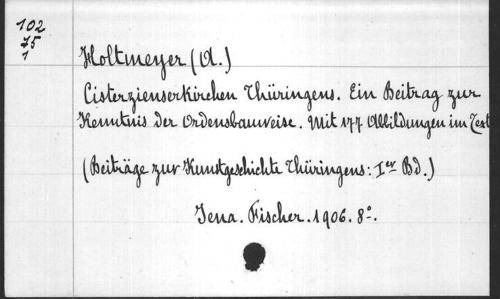 102
75
1
Holtmeyer (A.)
Cisterzienserkirchen Thüringens. Ein Beitrag zur
Kenntnis der Ordensbauweise. Mit 177 Abbildungen im Text
(Beiträge zur Kunstgeschichte Thüringens: Ier Bd.)
Jena. Fischer. 1906. 8º.